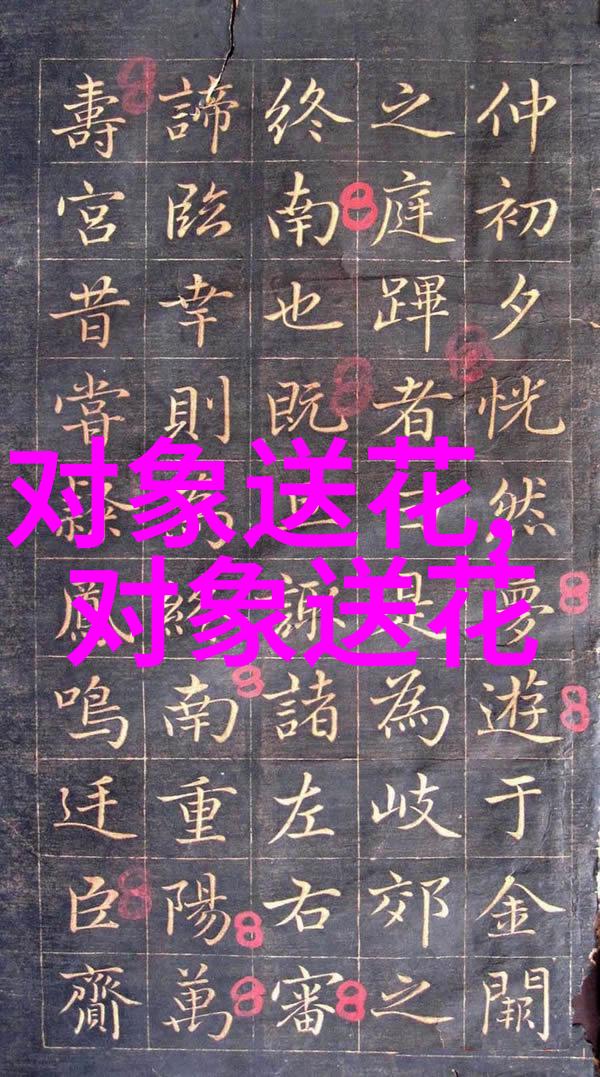 仲初夕恍然夢遊于金闕
之庭蹕者是為岐郊之
終南也既諏諸左右審
諦臨幸則為終南重陽萬
壽宮昔嘗鳳鳴廷臣齎
对象送花,
对象送花